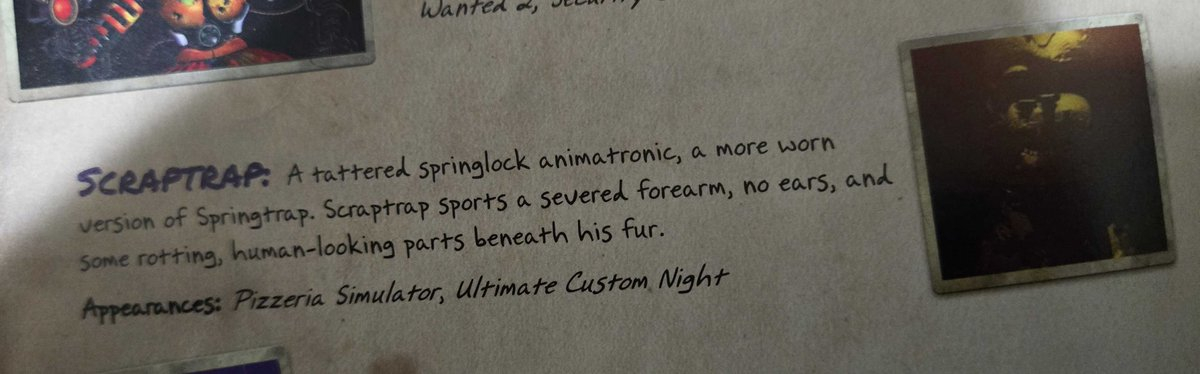 Wanted 2, Security
SCRAPTRAP: A tattered springlock animatronic, a more worn
version of Springtrap. Scraptrap sports a severed forearm, no ears, and
some rotting, human-looking parts beneath his fur.
Appearances: Pizzeria Simulator, Ultimate Custom Night